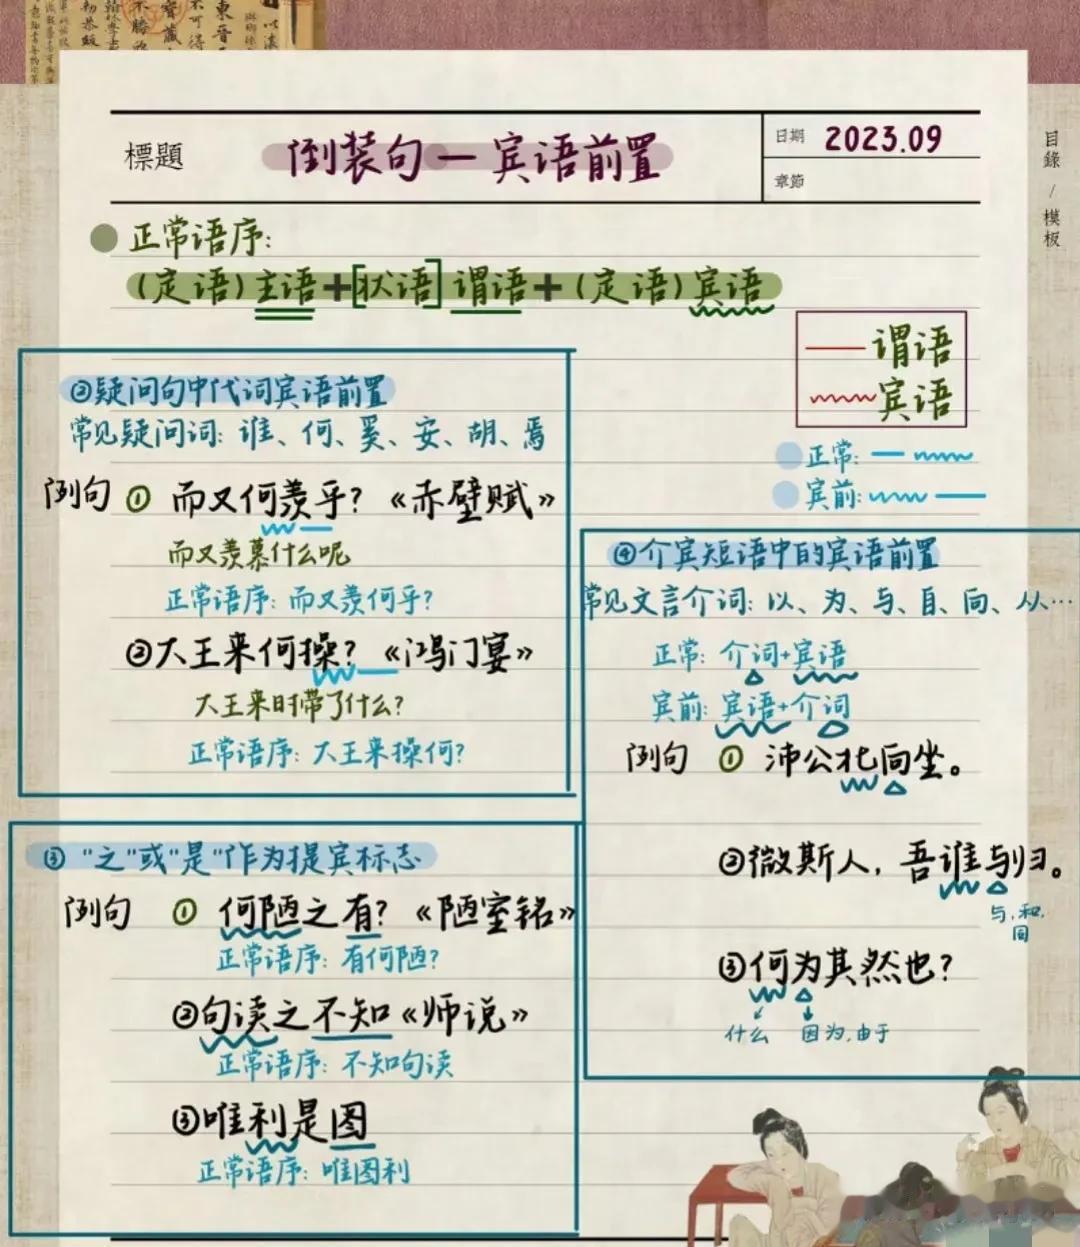 標題
倒装句一宾语前置
日期
2023.09
章節
目錄 / 模板
正常语序:
(定语)主语+[状语]谓语+(定语)宾语
谓语
宾语
正常:
宾前:
②疑问句中代词宾语前置
常见疑问词: 谁、何、奚、安、胡、焉
例句 ① 而又何羡乎? 《赤壁赋》
而又羡慕什么呢
正常语序: 而又羡何乎?
②大王来何操? 《鸿门宴》
大王来时带了什么?
正常语序: 大王来操何?
③ "之"或"是"作为提宾标志
例句 ① 何陋之有? 《陋室铭》
正常语序: 有何陋?
②句读之不知《师说》
正常语序: 不知句读
③唯利是图
正常语序: 唯图利
④介宾短语中的宾语前置
常见文言介词: 以、为、与、自、向、从…
正常: 介词+宾语
宾前: 宾语+介词
例句 ① 沛公北向坐。
②微斯人, 吾谁与归。
与,和,
同
③何为其然也?
什么 因为,由于